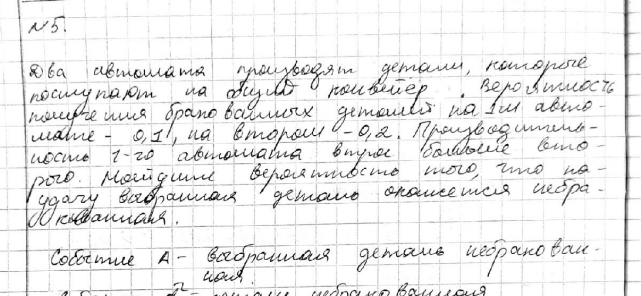 №5.
Два автомата производят детали, которые
поступают на общий конвейер. Вероятность
получения бракованных деталей на 1-м авто-
мате - 0,1, на втором - 0,2. Производитель-
ность 1-го автомата втрое больше вто-
рого. Найдите вероятность того, что на-
удачу выбранная деталь окажется небра-
кованная.
Событие А - выбранная деталь небракован-
ная.
деталь небракованная